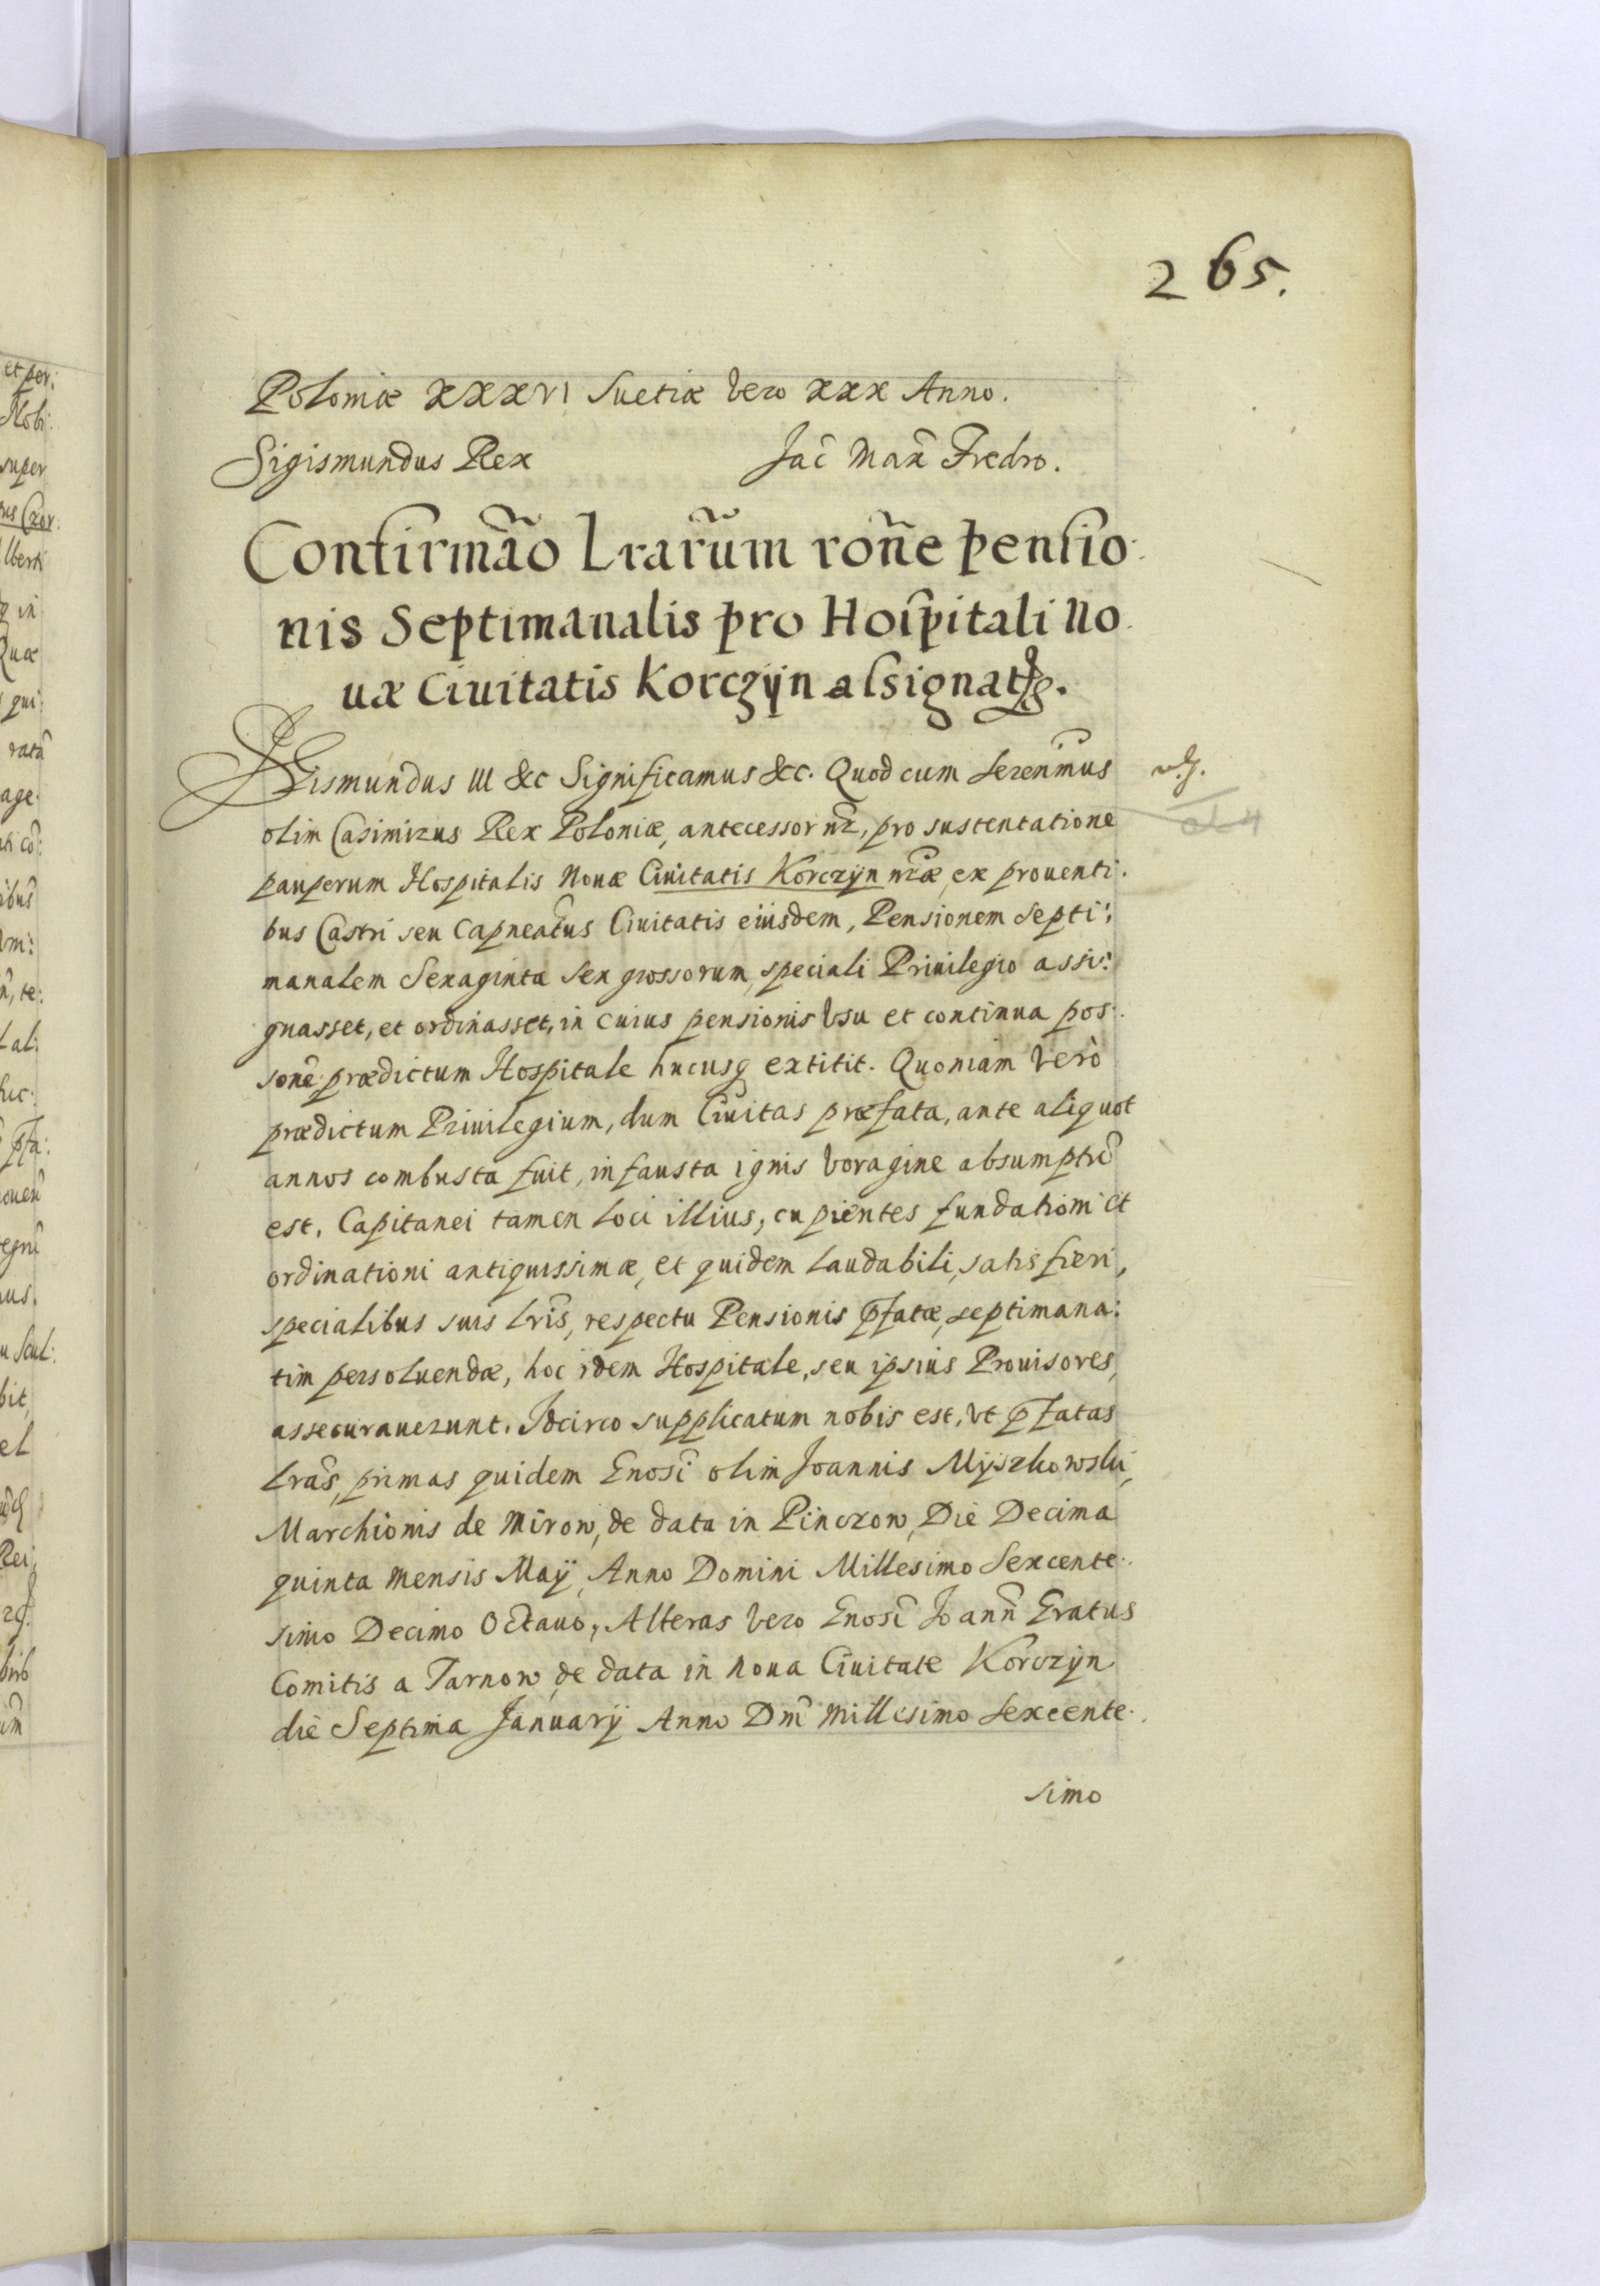 265.
Poloniæ XXXVI Suetiæ Vero XXX Anno.
Sigismundus Rex Jac̃ Max̃ Fredro.
Confirmão Lrarũm roñe pensio:
nis Septimanalis pro Hospitali No
uæ Ciuitatis Korczÿn assignat
Sigismundus III &c Significamus &c. Quod cum Sereñmus
olim Casimirus Rex Poloniæ, antecessor nr̃, pro sustentatione
pauperum Hospitalis Nouæ Ciuitatis Korczÿn nr̃æ, ex prouenti:
bus Castri seu Capneatus Ciuitatis eiusdem, Pensionem Septi:
manalem Sexaginta sex grossorum, speciali Priuilegio assi:
gnasset, et ordinasset, in cuius pensionis Vsu et continua pos:
sonẽ prædictum Hospitale hucusq extitit. Quoniam Verò
prædictum Priuilegium, dum Ciuitas præfata, ante aliquot
annos combusta fuit, infausta ignis Voragine absumptũ
est. Capitanei tamen loci illius, cupientes fundationi et
ordinationi antiquissimæ, et quidem laudabili, satis fieri,
specialibus suis lrĩs, respectu Pensionis p̃fatæ, septimana:
tim persoluendæ, hoc idem Hospitale, seu ipsius Prouisores,
assecurauerunt. Idcirco supplicatum nobis est, Vt p̃fatas
lrãs, primas quidem Gnosĩ olim Joannis Mÿszkowski,
Marchionis de Mirow, de data in Pinczow, Die Decima
quinta Mensis Maÿ, Anno Domini Millesimo Sexcente:
simo Decimo Octauo, Alteras Vero Gnosĩ Joanñ Gratus
Comitis a Tarnow, de data in Noua Ciuitate Korczÿn
die Septima Januarÿ Anno Dnĩ Millesimo Sexcente:
simo